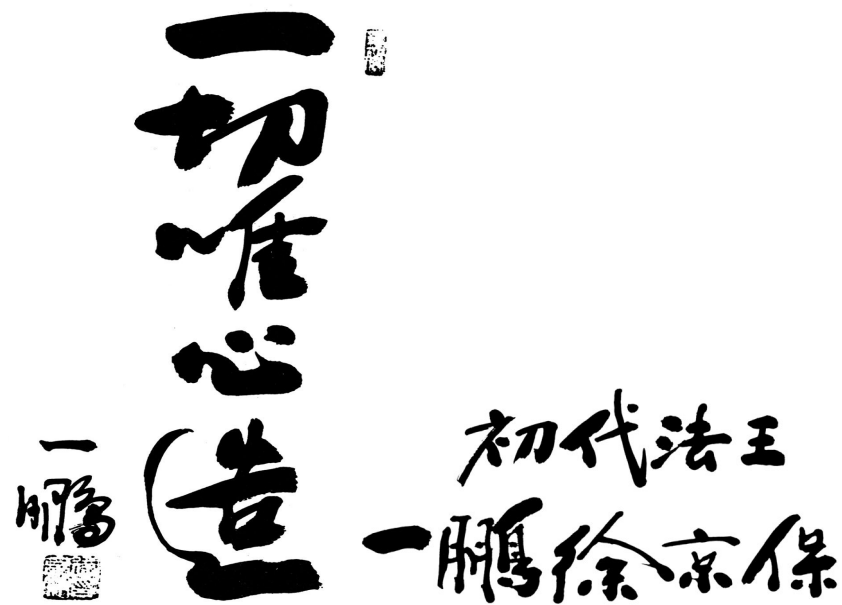 一切唯心造
一鵬
初代法王
一鵬徐京保